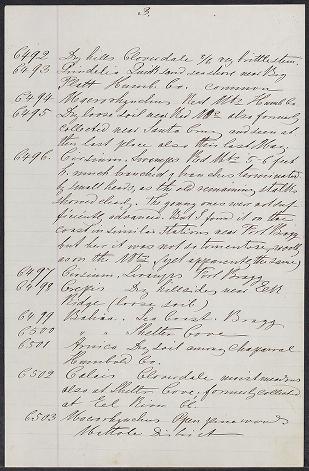 3.
6492 Dry hills Cloverdale 3/6 very brittle stem.
6493 Grindelia Drift sand sea shore near
Flatt Humb. Co. common
6494 Macrorhynchus Red Mts Humb Co
6495 Dry loose soil near Red Mts also formerly
collected near Santa Cruz and seen at
this last place also this last May
6496. Cirsium. Swamps Red Mts 5-6 feet
h. much branched & branches terminated
by small heads, as the old remaining stalks
showed clearly. The young ones were not suf-
ficiently advanced. But I found it on the
coast in similar stations near Fort Bragg
but here it was not so tomentose, woolly
as on the Mts (yet apparently the same)
6497 Cirsium. Swamps Fort Bragg
6498 Crepis Dry hillsides near Elk
Ridge (loose soil)
6499 Bahia. Sea Coast. Bragg
6500 " " Shelter Cove
6501 Arnica Dry soil among chaparral
Humboldt Co.
6502 Calais Cloverdale moist meadows
also at Shelter Cove; formerly collected
at Eel River Ct.
6503 Macrorhynchus Open pine woods
Mattole District